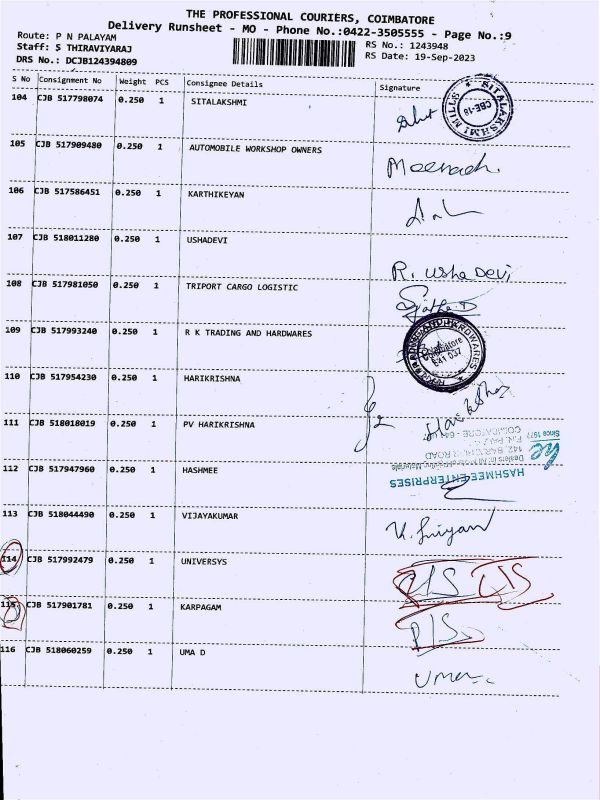 THE PROFESSIONAL COURIERS, COIMBATORE
Delivery Runsheet - MO - Phone No.:0422-3505555 - Page No.:9
Route: P N PALAYAM
RS No.: 1243948
Staff: S THIRAVIYARAJ
RS Date: 19-Sep-2023
DRS No.: DCJB124394809
S No Consignment No Weight PCS Consignee Details Signature
104 CJB 517798074 0.250 1 SITALAKSHMI
SITALAKSHMI MILLS CBE-18
105 CJB 517909480 0.250 1 AUTOMOBILE WORKSHOP OWNERS
106 CJB 517586451 0.250 1 KARTHIKEYAN
107 CJB 518011280 0.250 1 USHADEVI
R. Usha Devi
108 CJB 517981050 0.250 1 TRIPORT CARGO LOGISTIC
109 CJB 517993240 0.250 1 R K TRADING AND HARDWARES
Coimbatore
641 037
110 CJB 517954230 0.250 1 HARIKRISHNA
111 CJB 518018019 0.250 1 PV HARIKRISHNA
Since 1977
112 CJB 517947960 0.250 1 HASHMEE
HASHMEE ENTERPRISES
113 CJB 518044490 0.250 1 VIJAYAKUMAR
114 CJB 517992479 0.250 1 UNIVERSYS
115 CJB 517901781 0.250 1 KARPAGAM
116 CJB 518060259 0.250 1 UMA D
Uma